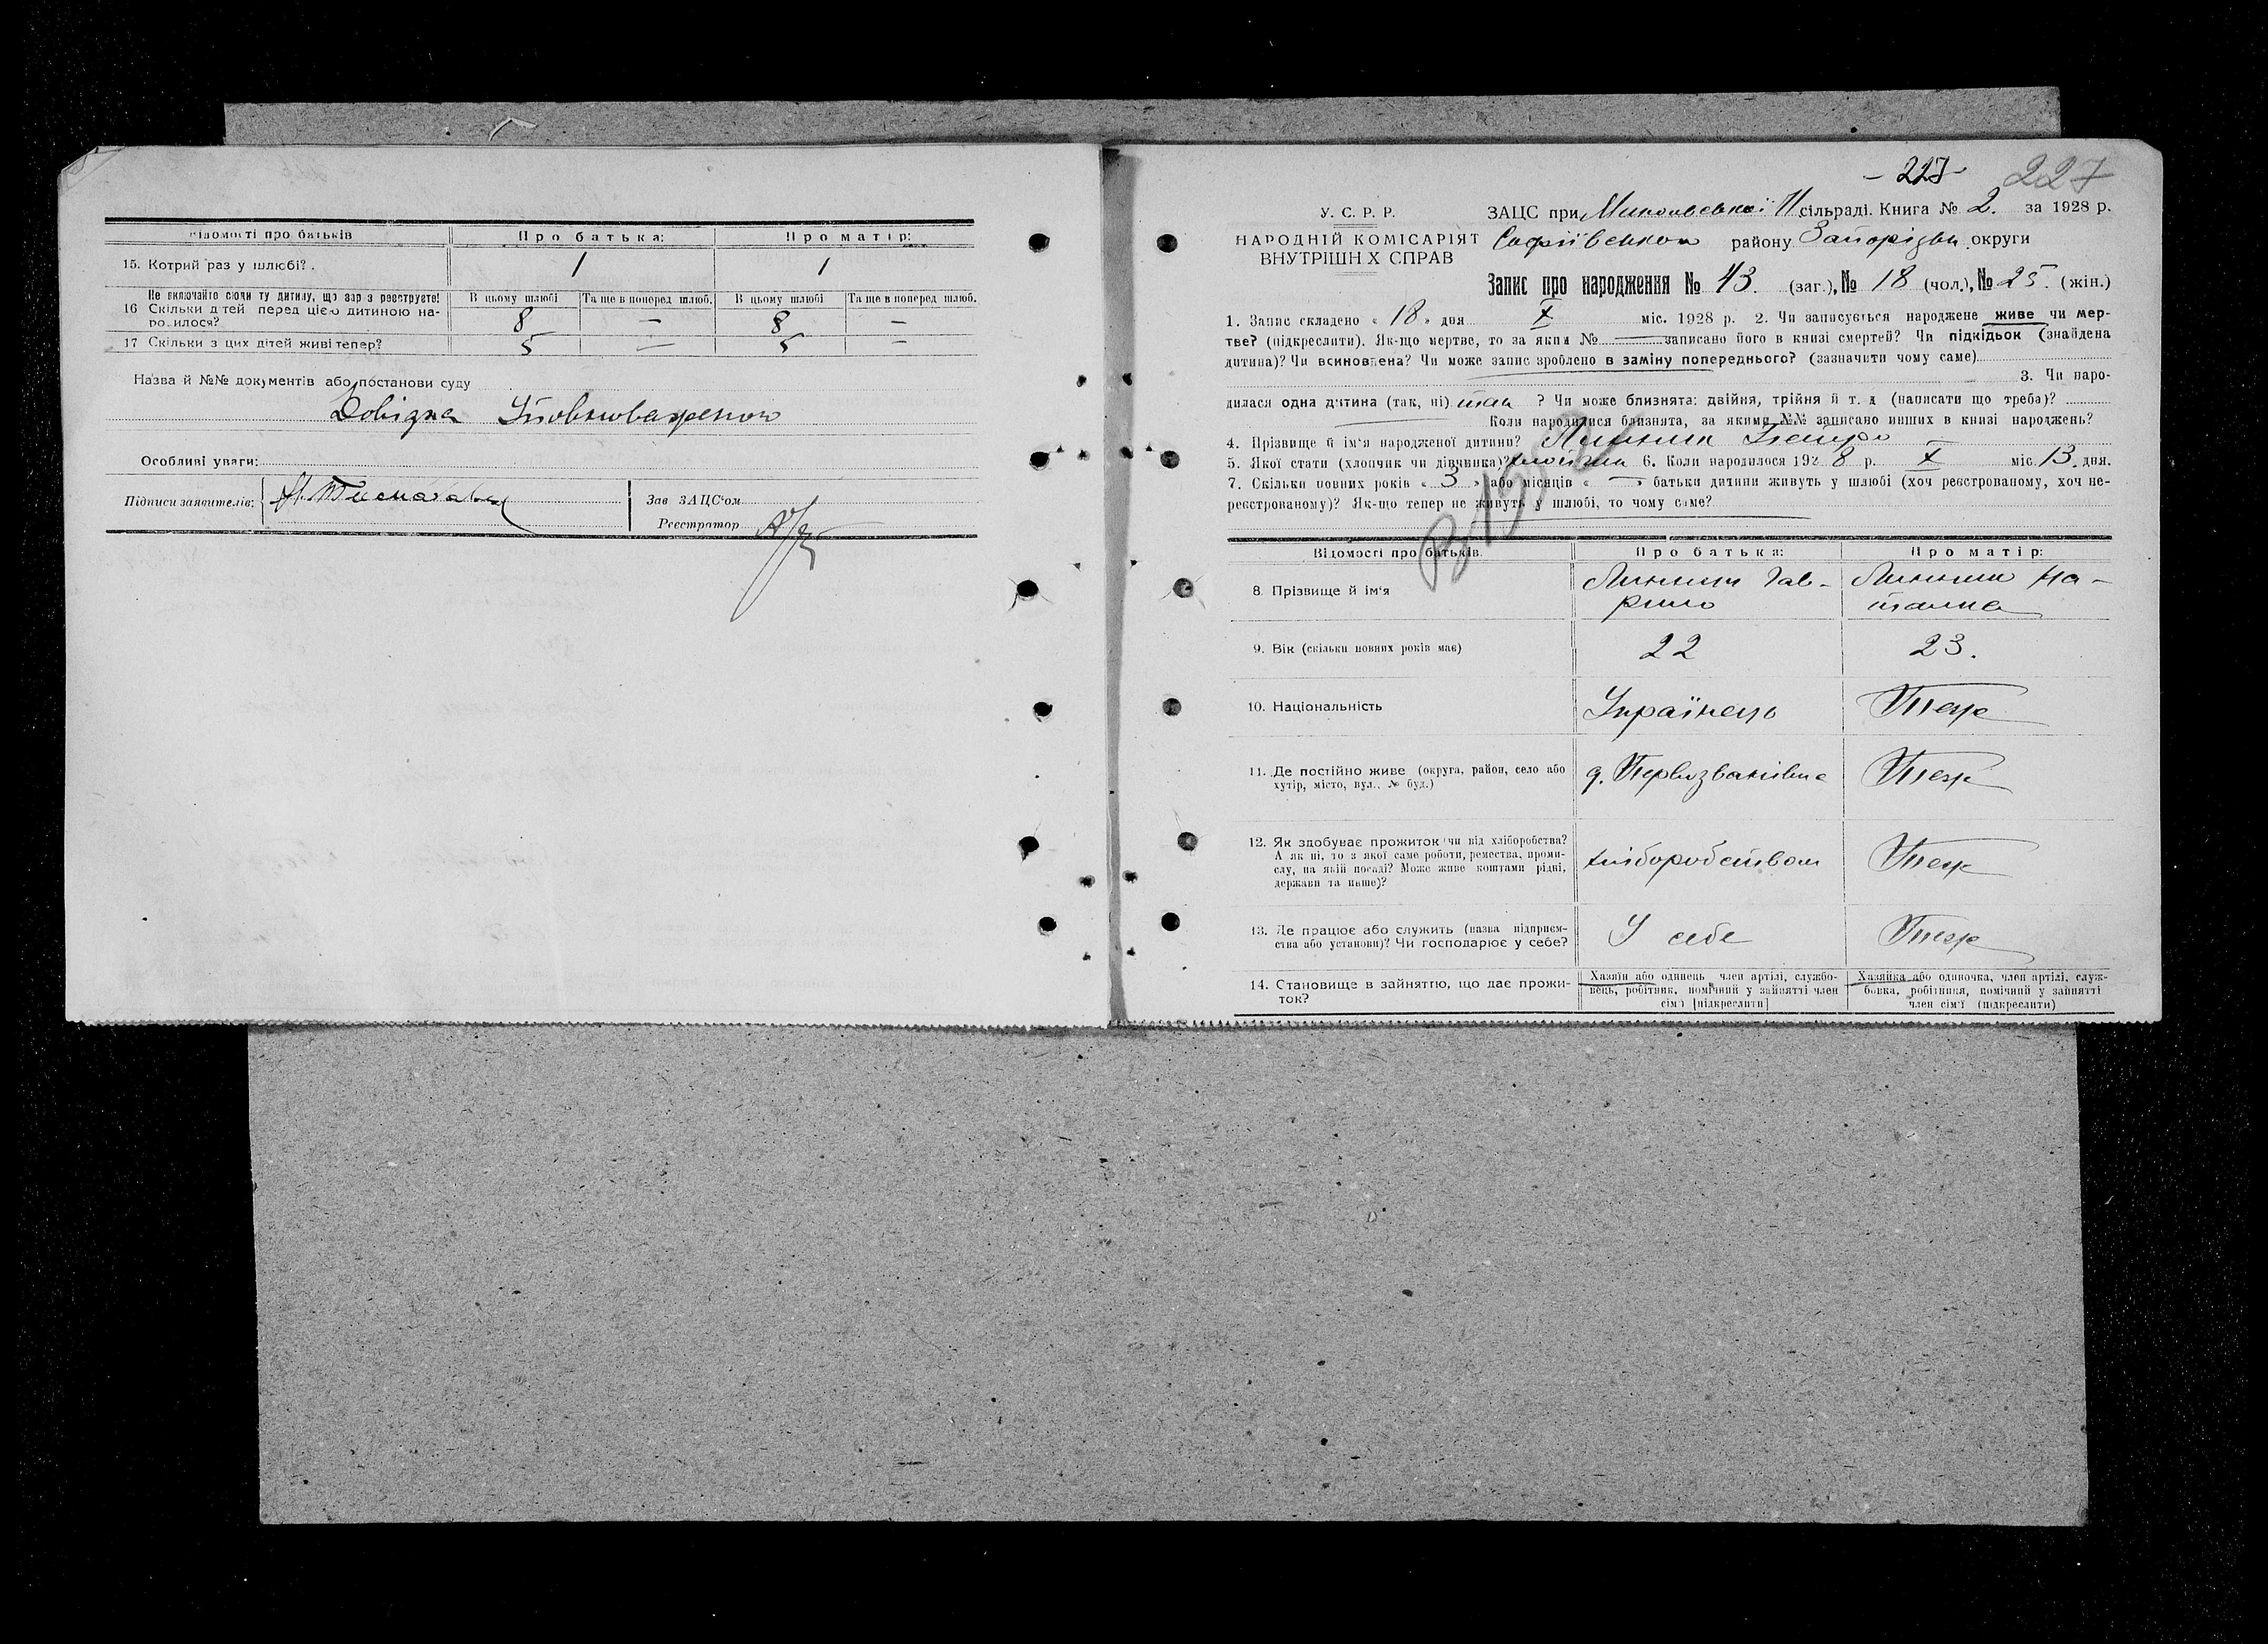 Відомості про батьків
Про батька:
Про матір:
15. Котрий раз у шлюбі?
1
1
Не включайте сюди ту дитину, що зараз реєструєте!
16 Скільки дітей перед цією дитиною народилося?
В цьому шлюбі
Та ще в поперед. шлюб.
В цьому шлюбі
Та ще в поперед. шлюб.
8
—
8
—
17 Скільки з цих дітей живі тепер?
5
—
5
—
Назва й №№ документів або постанови суду
Довідка Уповноваженого
Особливі уваги:
Підписи заявителів:
Зав ЗАЦС'ом
Реєстратор
- 227 -
227
У. С. Р. Р.
НАРОДНІЙ КОМІСАРІЯТ
ВНУТРІШНІХ СПРАВ
ЗАЦС при сільраді. Книга № 2. за 1928 р.
Софіївського району Запорізьк. округи
Запис про народження № 43. (заг.), № 18 (чол.), № 25. (жін.)
1. Запис складено « 18 » дня X міс. 1928 р. 2. Чи записується народжене живе чи мер-
тве? (підкреслити). Як-що мертве, то за яким № — записано його в книзі смертей? Чи підкідьок (знайдена
дитина)? Чи всиновлена? Чи може запис зроблено в заміну попереднього? (зазначити чому саме)
3. Чи наро-
дилася одна дитина (так, ні) так ? Чи може близнята: двійня, трійня й т. д. (написати що треба)?
Коли народилися близнята, за якими №№ записано инших в книзі народжень?
4. Прізвище й ім'я народженої дитини? Линник Петро
5. Якої стати (хлопчик чи дівчинка)? хлопчик 6. Коли народилося 1928 р. X міс. 13. дня.
7. Скільки повних років « 3 » або місяців « — » батьки дитини живуть у шлюбі (хоч реєстрованому, хоч не-
реєстрованому)? Як-що тепер не живуть у шлюбі, то чому саме?
Відомості про батьків
Про батька:
Про матір:
8. Прізвище й ім'я
Линник Гав-
рило
Линник На-
талка
9. Вік (скільки повних років має)
22
23.
10. Національність
Українець
Теж
11. Де постійно живе (округа, район, село або
хутір, місто, вул., № буд.)
д. Первозванівка
Теж
12. Як здобуває прожиток чи від хліборобства?
А як ні, то з якої саме роботи, ремества, проми-
слу, на якій посаді? Може живе коштами рідні,
держави та инше)?
хліборобством
Теж
13. Де працює або служить (назва підприєм-
ства або установи)? Чи господарює у себе?
У себе
Теж
14. Становище в зайняттю, що дає прожи-
ток?
Хазяїн або одинець, член артілі, службо-
вець, робітник, помічний у зайнятті член
сім'ї [підкреслити]
Хазяйка або одиночка, член артілі, служ-
бовка, робітниця, помічний у зайнятті
член сім'ї (підкреслити)